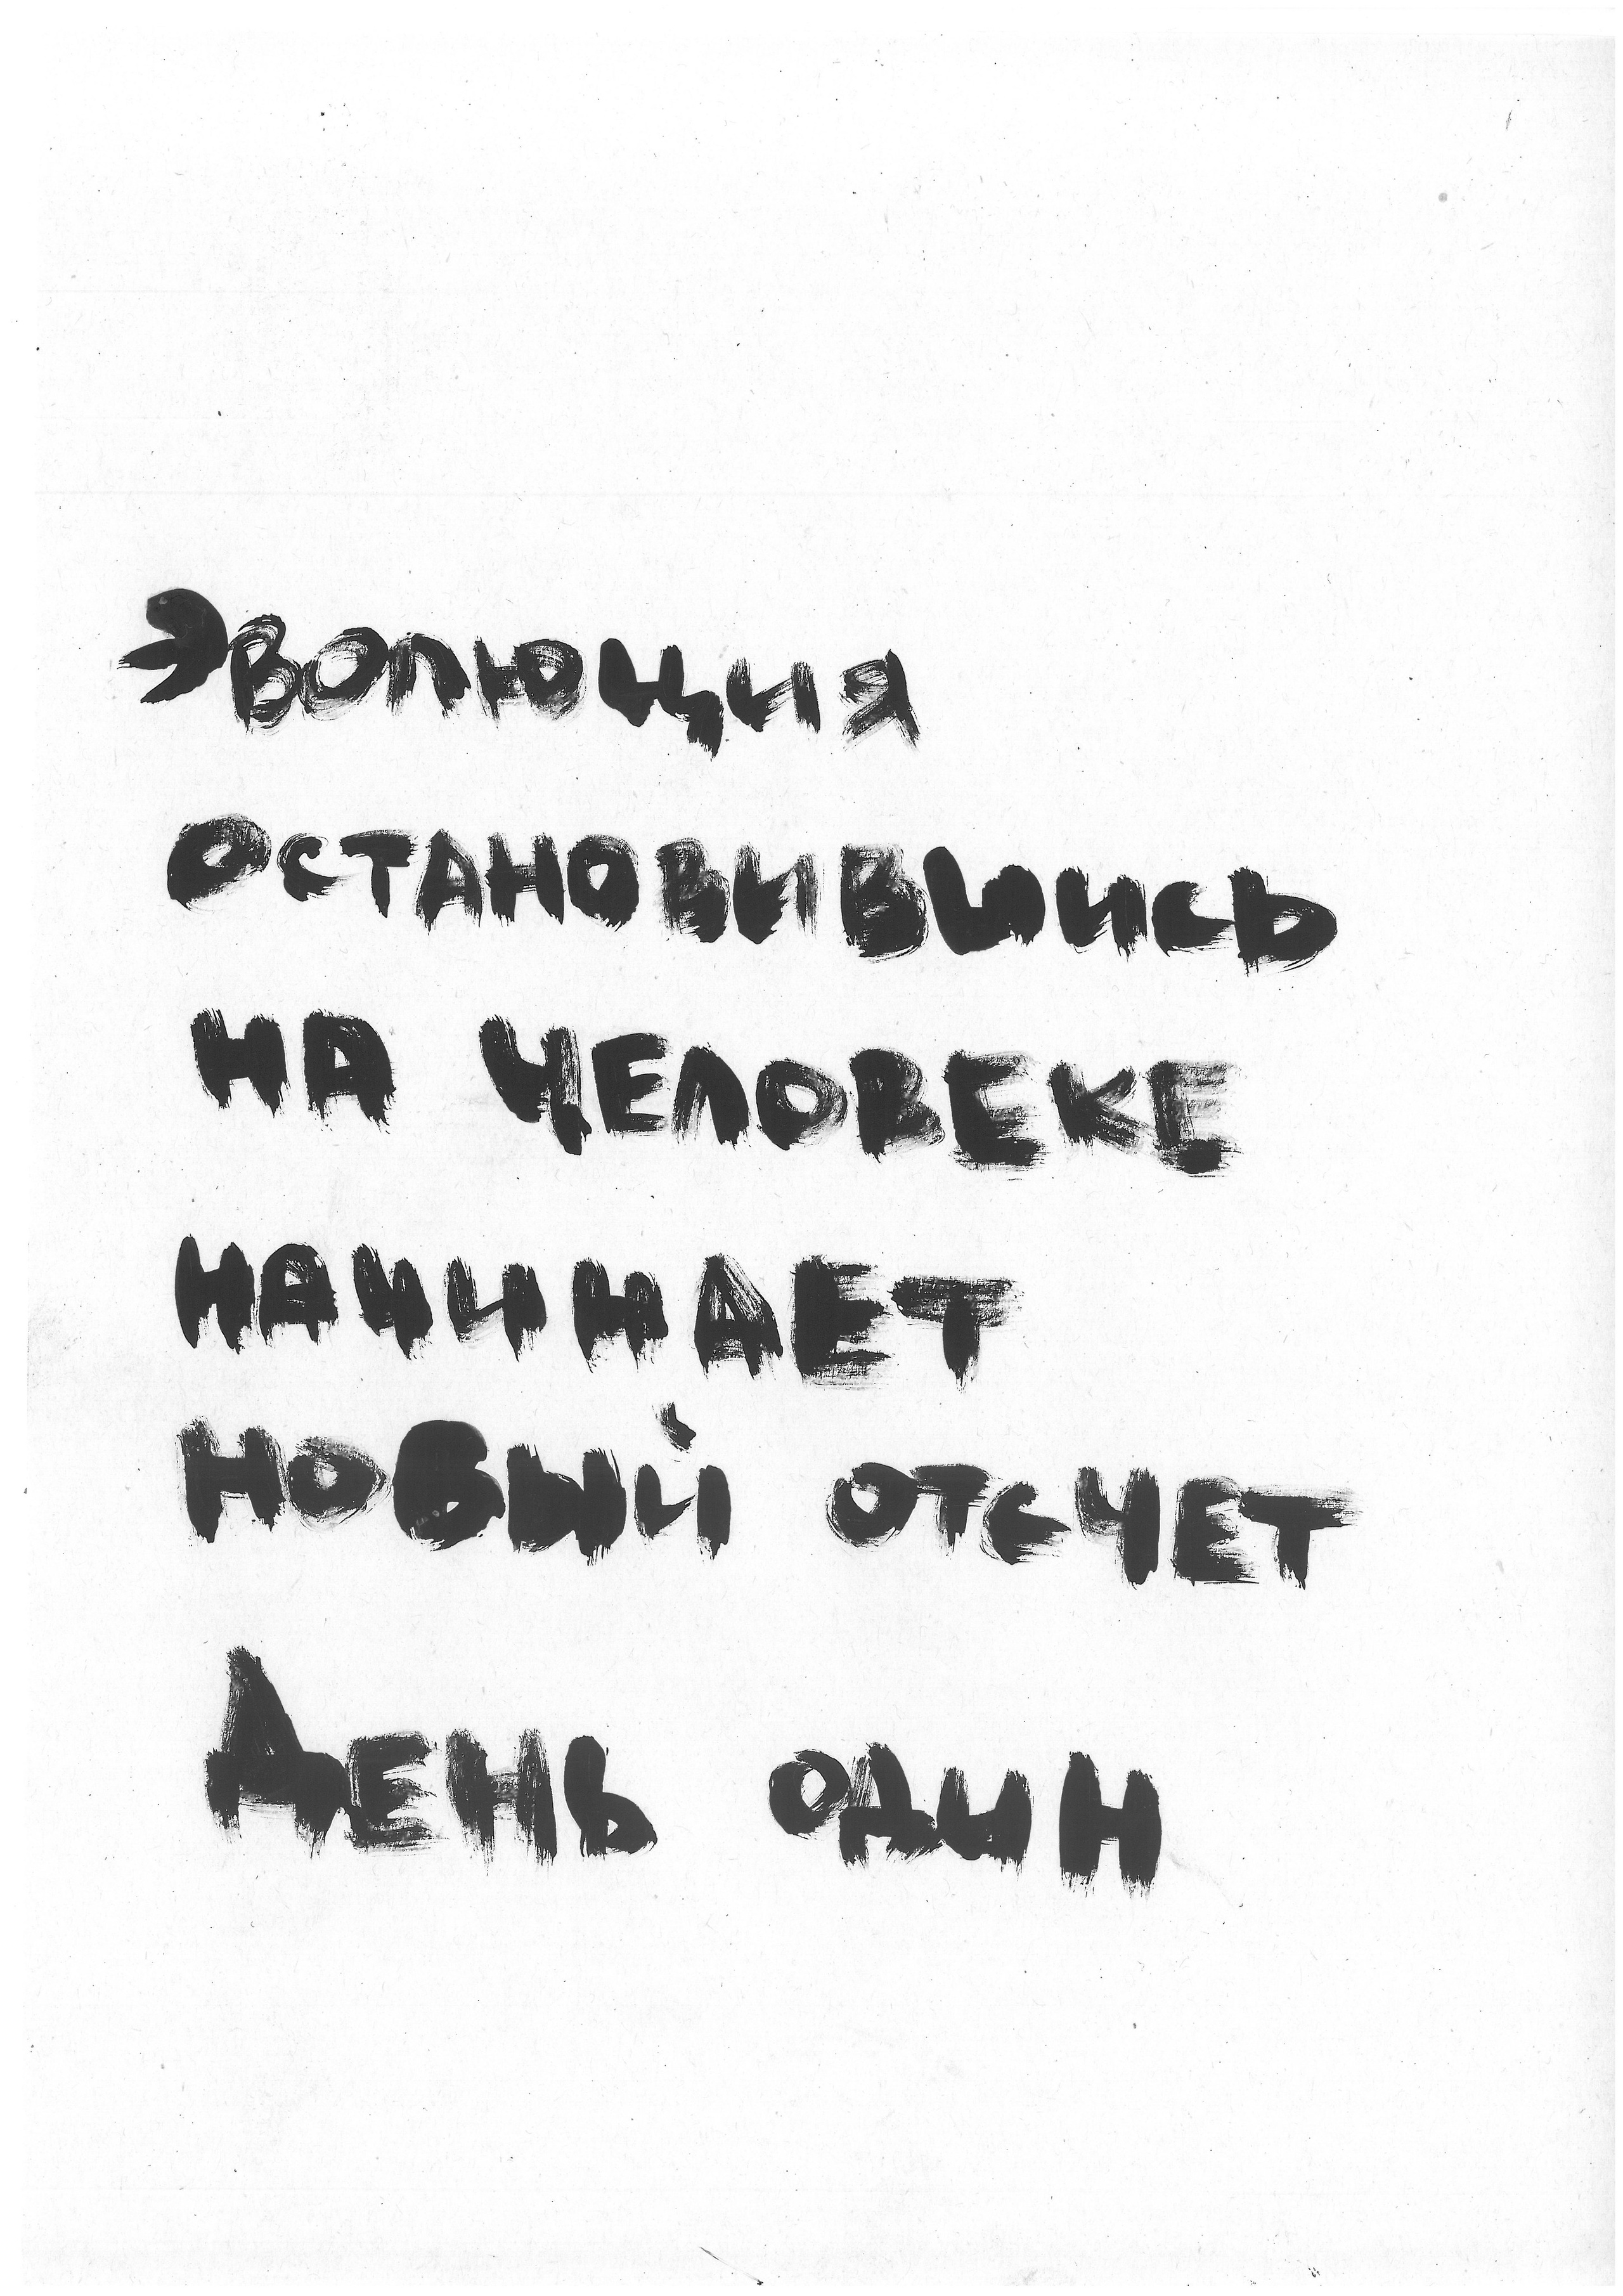 Эволюция
остановившись
на человеке
начинает
новый отсчет
День один